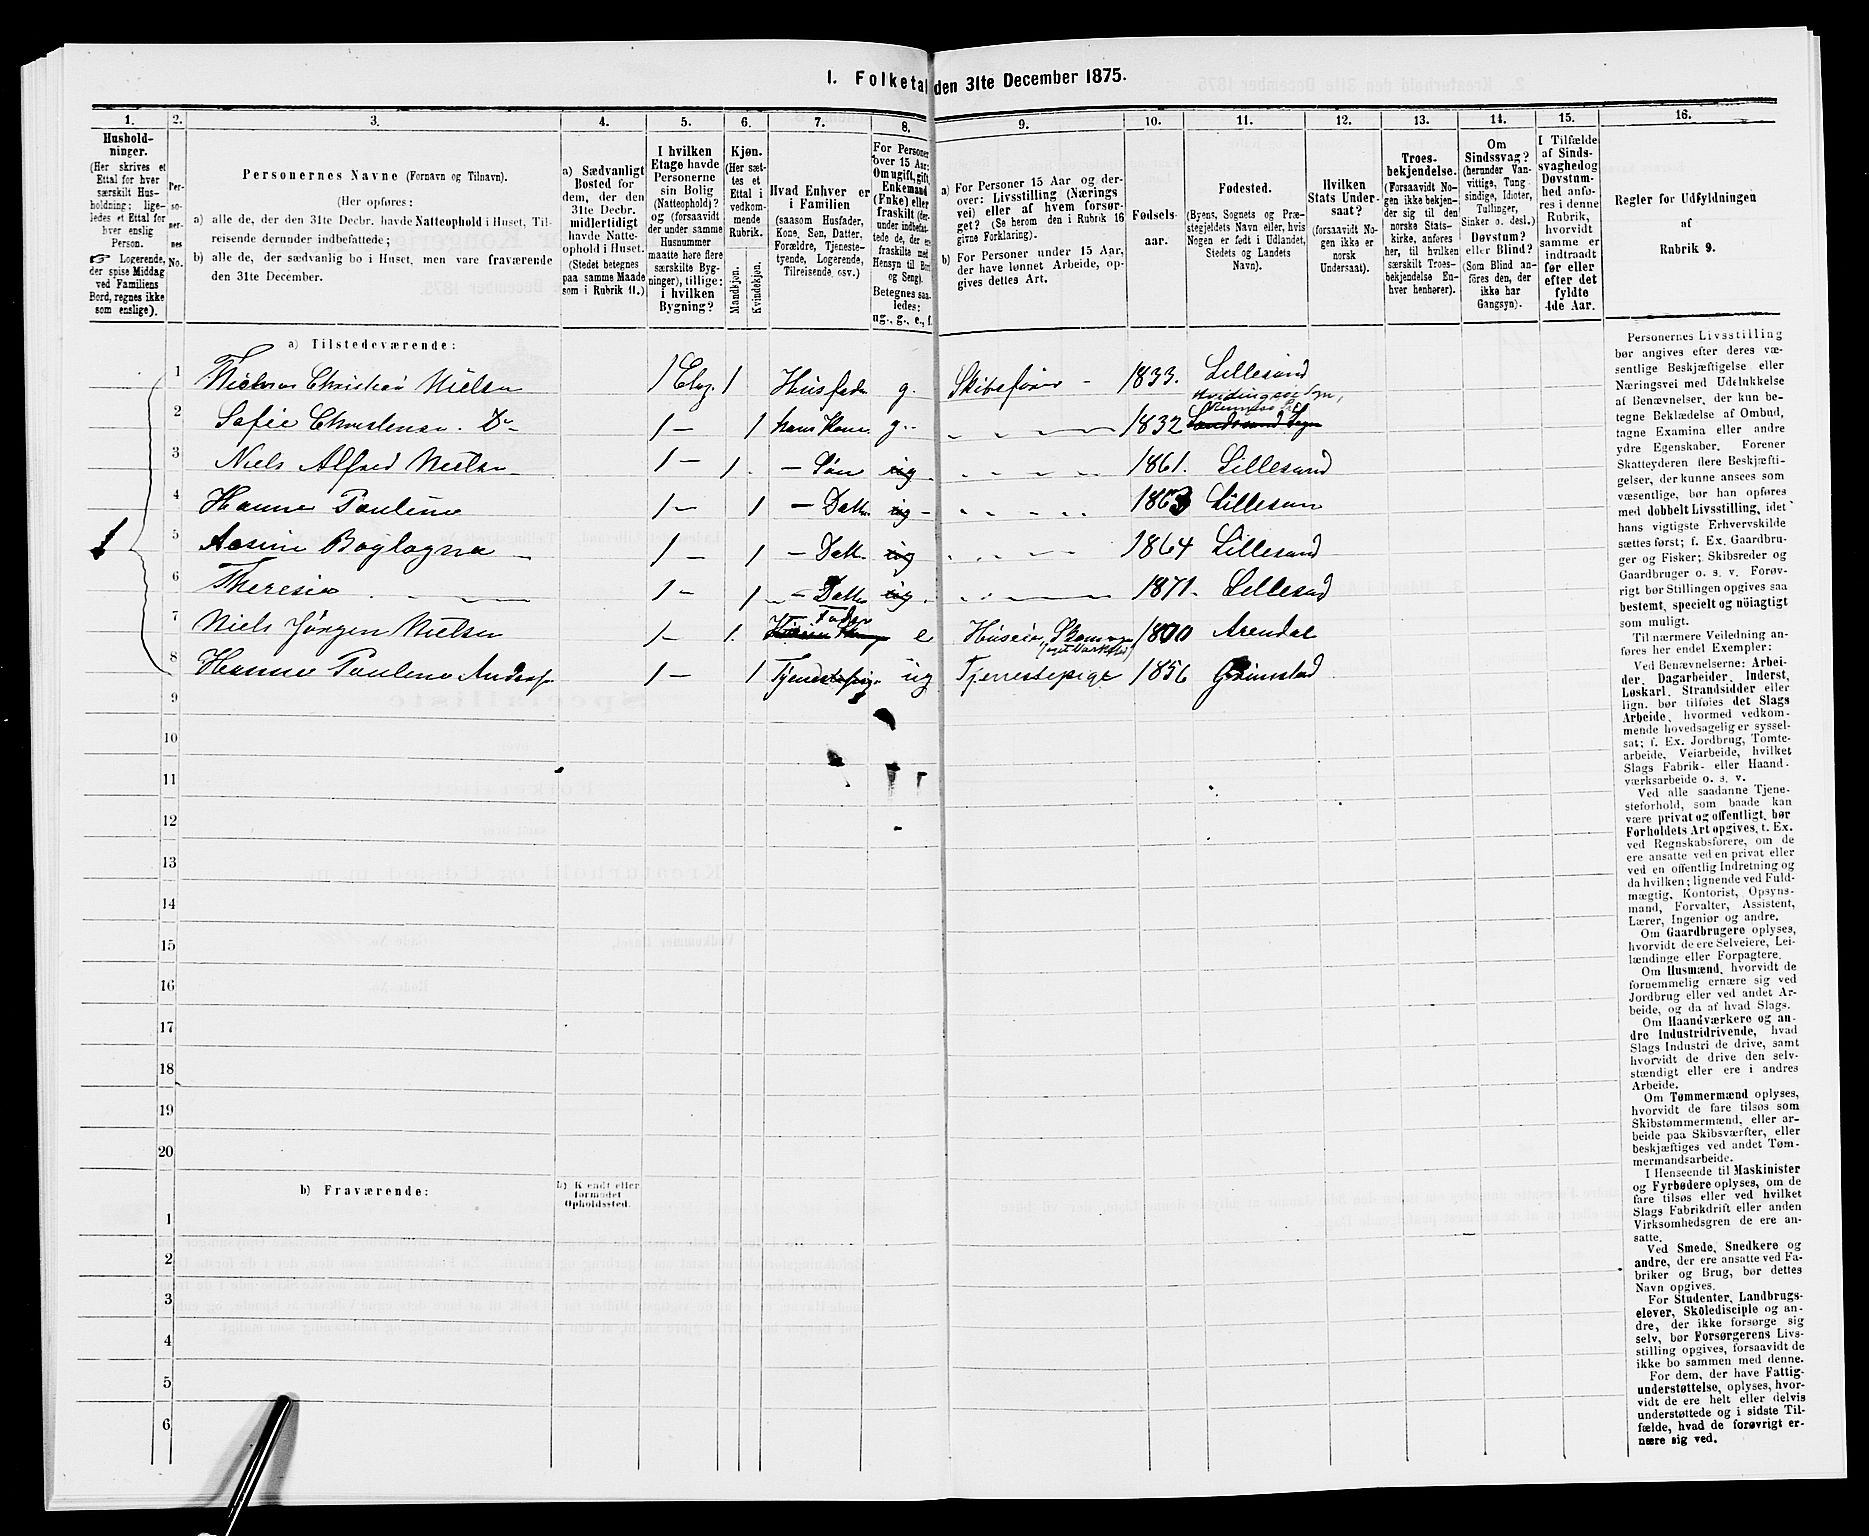 1. Folketal den 31te December 1875.
1. 2. 3. 4. 5. 6. 7. 8. 9. 10. 11. 12. 13. 14. 15. 16.
Hushold-
ninger.
(Her skrives et
Ettal for hver
særskilt Hus-
holdning; lige-
ledes et Ettal for
hver enslig
Person.
☞ Logerende,
der spise Middag
ved Familiens
Bord, regnes ikke
som enslige).
Per-
so-
ner-
nes
No.
Personernes Navne (Fornavn og Tilnavn).
(Her opføres:
a) alle de, der den 31te Decbr. havde Natteophold i Huset, Til-
reisende derunder indbefattede;
b) alle de, der sædvanlig bo i Huset, men vare fraværende
den 31te December.
a) Sædvanligt
Bosted for
dem, der den
31te Decbr.
midlertidigt
havde Natte-
ophold i Huset.
(Stedet betegnes
paa samme Maade
som i Rubrik 11.)
I hvilken
Etage havde
Personerne
sin Bolig
(Natteophold)?
og (forsaavidt
der under samme
Husnummer
maatte høre flere
særskilte Byg-
ninger), tillige:
i hvilken
Bygning?
Kjøn.
(Her sæt-
tes et
Ettal i
vedkom-
mende
Rubrik.
Mandkjøn.
Kvindekjøn.
Hvad Enhver er
i Familien
(saasom Husfader,
Kone, Søn, Datter,
Forældre, Tjeneste-
tyende, Logerende,
Tilreisende, osv.)
For Personer
over 15 Aar:
Om ugift, gift,
Enkemand
(Enke) eller
fraskilt (der-
under indbefat-
tede de, der ere
fraskilte med
Hensyn til Bord
og Seng).
Betegnes saa-
ledes:
ug., g., e., f.
a) For Personer 15 Aar og der-
over: Livsstilling (Nærings-
vei) eller af hvem forsør-
get? (Se herom den i Rubrik 16
givne Forklaring).
b) For Personer under 15 Aar,
der have lønnet Arbeide, op-
gives dettes Art.
Fødsels-
aar.
Fødested.
(Byens, Sognets og Præ-
stegjeldets Navn eller, hvis
Nogen er født i Udlandet,
Stedets og Landets
Navn).
Hvilken
Stats Under-
saat?
(forsaavidt No-
gen ikke er
norsk
Undersaat).
Troes-
bekjendelse.
(Forsaavidt No-
gen ikke bekjen-
der sig til den
norske Stats-
kirke, anføres
her, til hvilken
særskilt Troes-
bekjendelse En-
hver henhører).
Om
Sindssvag?
(herunder Van-
vittige, Tung-
sindige, Idioter,
Tullinger,
Sinker o. desl.)
Døvstum?
eller Blind?
(Som Blind an-
føres den, der
ikke har
Gangsyn).
I Tilfælde
af Sinds-
svaghed og
Døvstum-
hed anfø-
res i denne
Rubrik,
hvorvidt
samme er
indtraadt
før eller
efter det
fyldte
4de Aar.
Regler for Udfyldningen
af
Rubrik 9.
a) Tilstedeværende:
1 Christian Nielsen 1 Etag. 1 Husfader g. Skibsfører - 1833. Lillesand
2 Sofie D° 1 - 1 hans Kone g. 1832
3 Niels Alfred Nielsen 1 - 1. - Søn ug 1861. Lillesand
4 Hanne Pauline 1 - 1 - Datter ug 1863 Lillesan
5 1 - 1 - Datt. ug 1864 Lillesand
6 Theresia 1 - 1 - Datter ug 1871. Lillesand
7 Niels Jörgen Nielsen 1 - 1. Fader e 1800 Arendal
1
8 Hanne Pauline Anders. 1 - 1 Tjenestepige ug Tjenestepige 1856 Grimstad
9
10
11
12
13
14
15
16
17
18
19
20
b) Fraværende:
b) Kjendt eller
formodet
Opholdssted.
1
2
3
4
5
6
Personernes Livsstilling
bør angives efter deres væ-
sentlige Beskjæftigelse eller
Næringsvei med Udelukkelse
af Benævnelser, der kun be-
tegne Beklædelse af Ombud,
tagne Examina eller andre
ydre Egenskaber. Forener
Skatteyderen flere Beskjæfti-
gelser, der kunne ansees som
væsentlige, bør han opføres
med dobbelt Livsstilling, idet
hans vigtigste Erhvervskilde
sættes først; f. Ex. Gaardbru-
ger og Fisker; Skibsreder og
Gaardbruger o. s. v. Forøv-
rigt bør Stillingen opgives saa
bestemt, specielt og nöiagtigt
som muligt.
Til nærmere Veiledning an-
føres her endel Exempler:
Ved Benævnelserne: Arbei-
der, Dagarbeider, Inderst,
Løskarl, Strandsidder eller
lign. bør tilføies det Slags
Arbeide, hvormed vedkom-
mende hovedsagelig er syssel-
sat; f. Ex. Jordbrug, Tomte-
arbeide, Veiarbeide, hvilket
Slags Fabrik- eller Haand-
værksarbeide o. s. v.
Ved alle saadanne Tjene-
steforhold, som baade kan
være privat og offentligt, bør
Forholdets Art opgives, t. Ex.
ved Regnskabsførere, om de
ere ansatte ved en privat eller
ved en offentlig Indretning og
da hvilken; lignende ved Fuld-
mægtig, Kontorist, Opsyns-
mand, Forvalter, Assistent,
Lærer, Ingeniør og andre.
Om Gaardbrugere oplyses,
hvorvidt de ere Selveiere, Lei-
lændinge eller Forpagtere.
Om Husmænd, hvorvidt de
fornemmelig ernære sig ved
Jordbrug eller ved andet Ar-
beide, og da af hvad Slags.
Om Haandværkere og an-
dre Industridrivende, hvad
Slags Industri de drive, samt
hvorvidt de drive den selv-
stændigt eller ere i andres
Arbeide.
Om Tømmermænd oplyses,
hvorvidt de fare tilsøs som
Skibstømmermænd, eller ar-
beide paa Skibsværfter, eller
beskjæftiges ved andet Tøm-
mermandsarbeide.
I Henseende til Maskinister
og Fyrbødere oplyses, om de
fare tilsøs eller ved hvilket
Slags Fabrikdrift eller anden
Virksomhedsgren de ere an-
satte.
Ved Smede, Snedkere og
andre, der ere ansatte ved Fa-
briker og Brug, bør dettes
Navn opgives.
For Studenter, Landbrugs-
elever, Skoledisciple og an-
dre, der ikke forsørge sig
selv, bør Forsørgerens Livs-
stilling opgives, forsaavidt de
ikke bo sammen med denne.
For dem, der have Fattig-
understøttelse, oplyses, hvor-
vidt de ere helt eller delvis
understøttede og i sidste Til-
fælde, hvad de forøvrigt er-
nære sig ved.